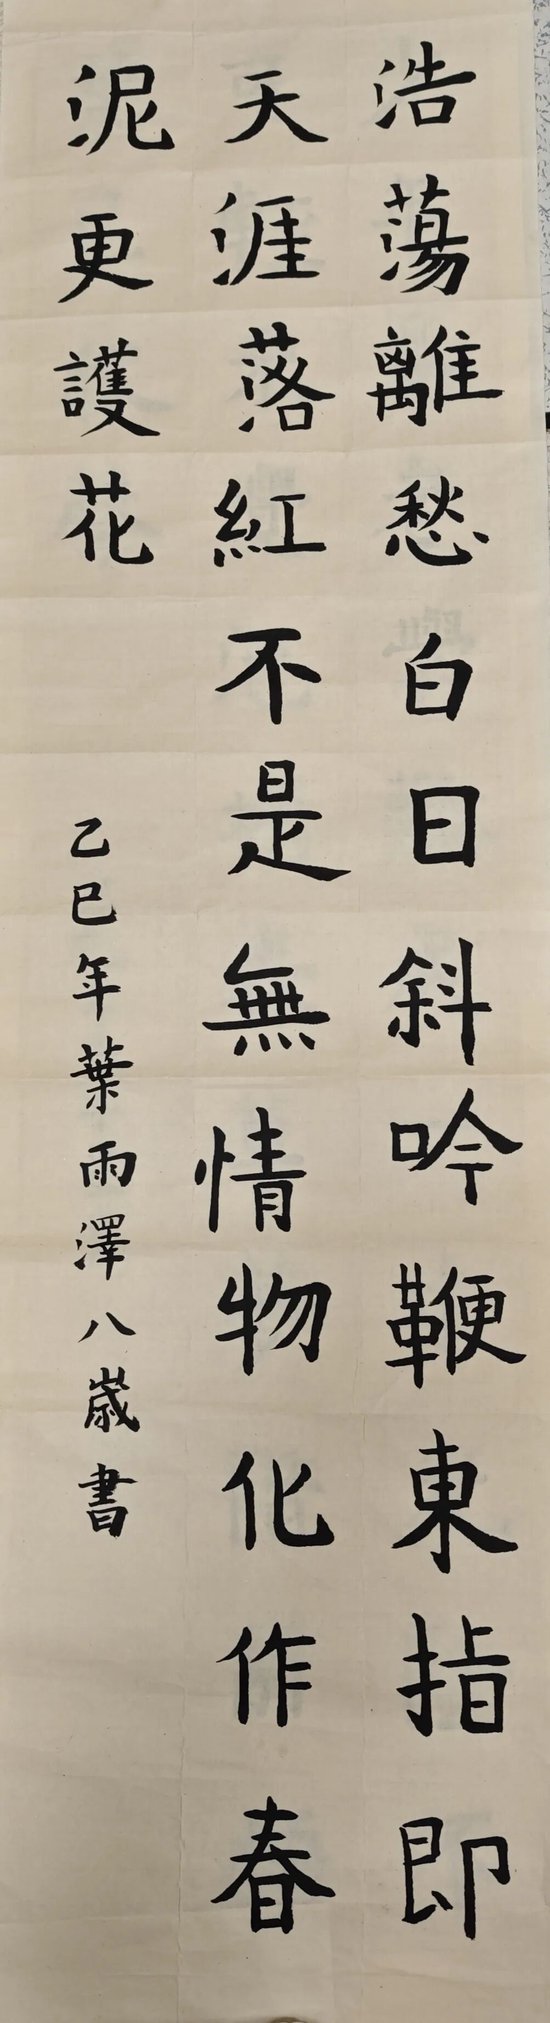 浩蕩離愁白日斜吟鞭東指即
天涯落紅不是無情物化作春
泥更護花
乙巳年葉雨澤八歲書